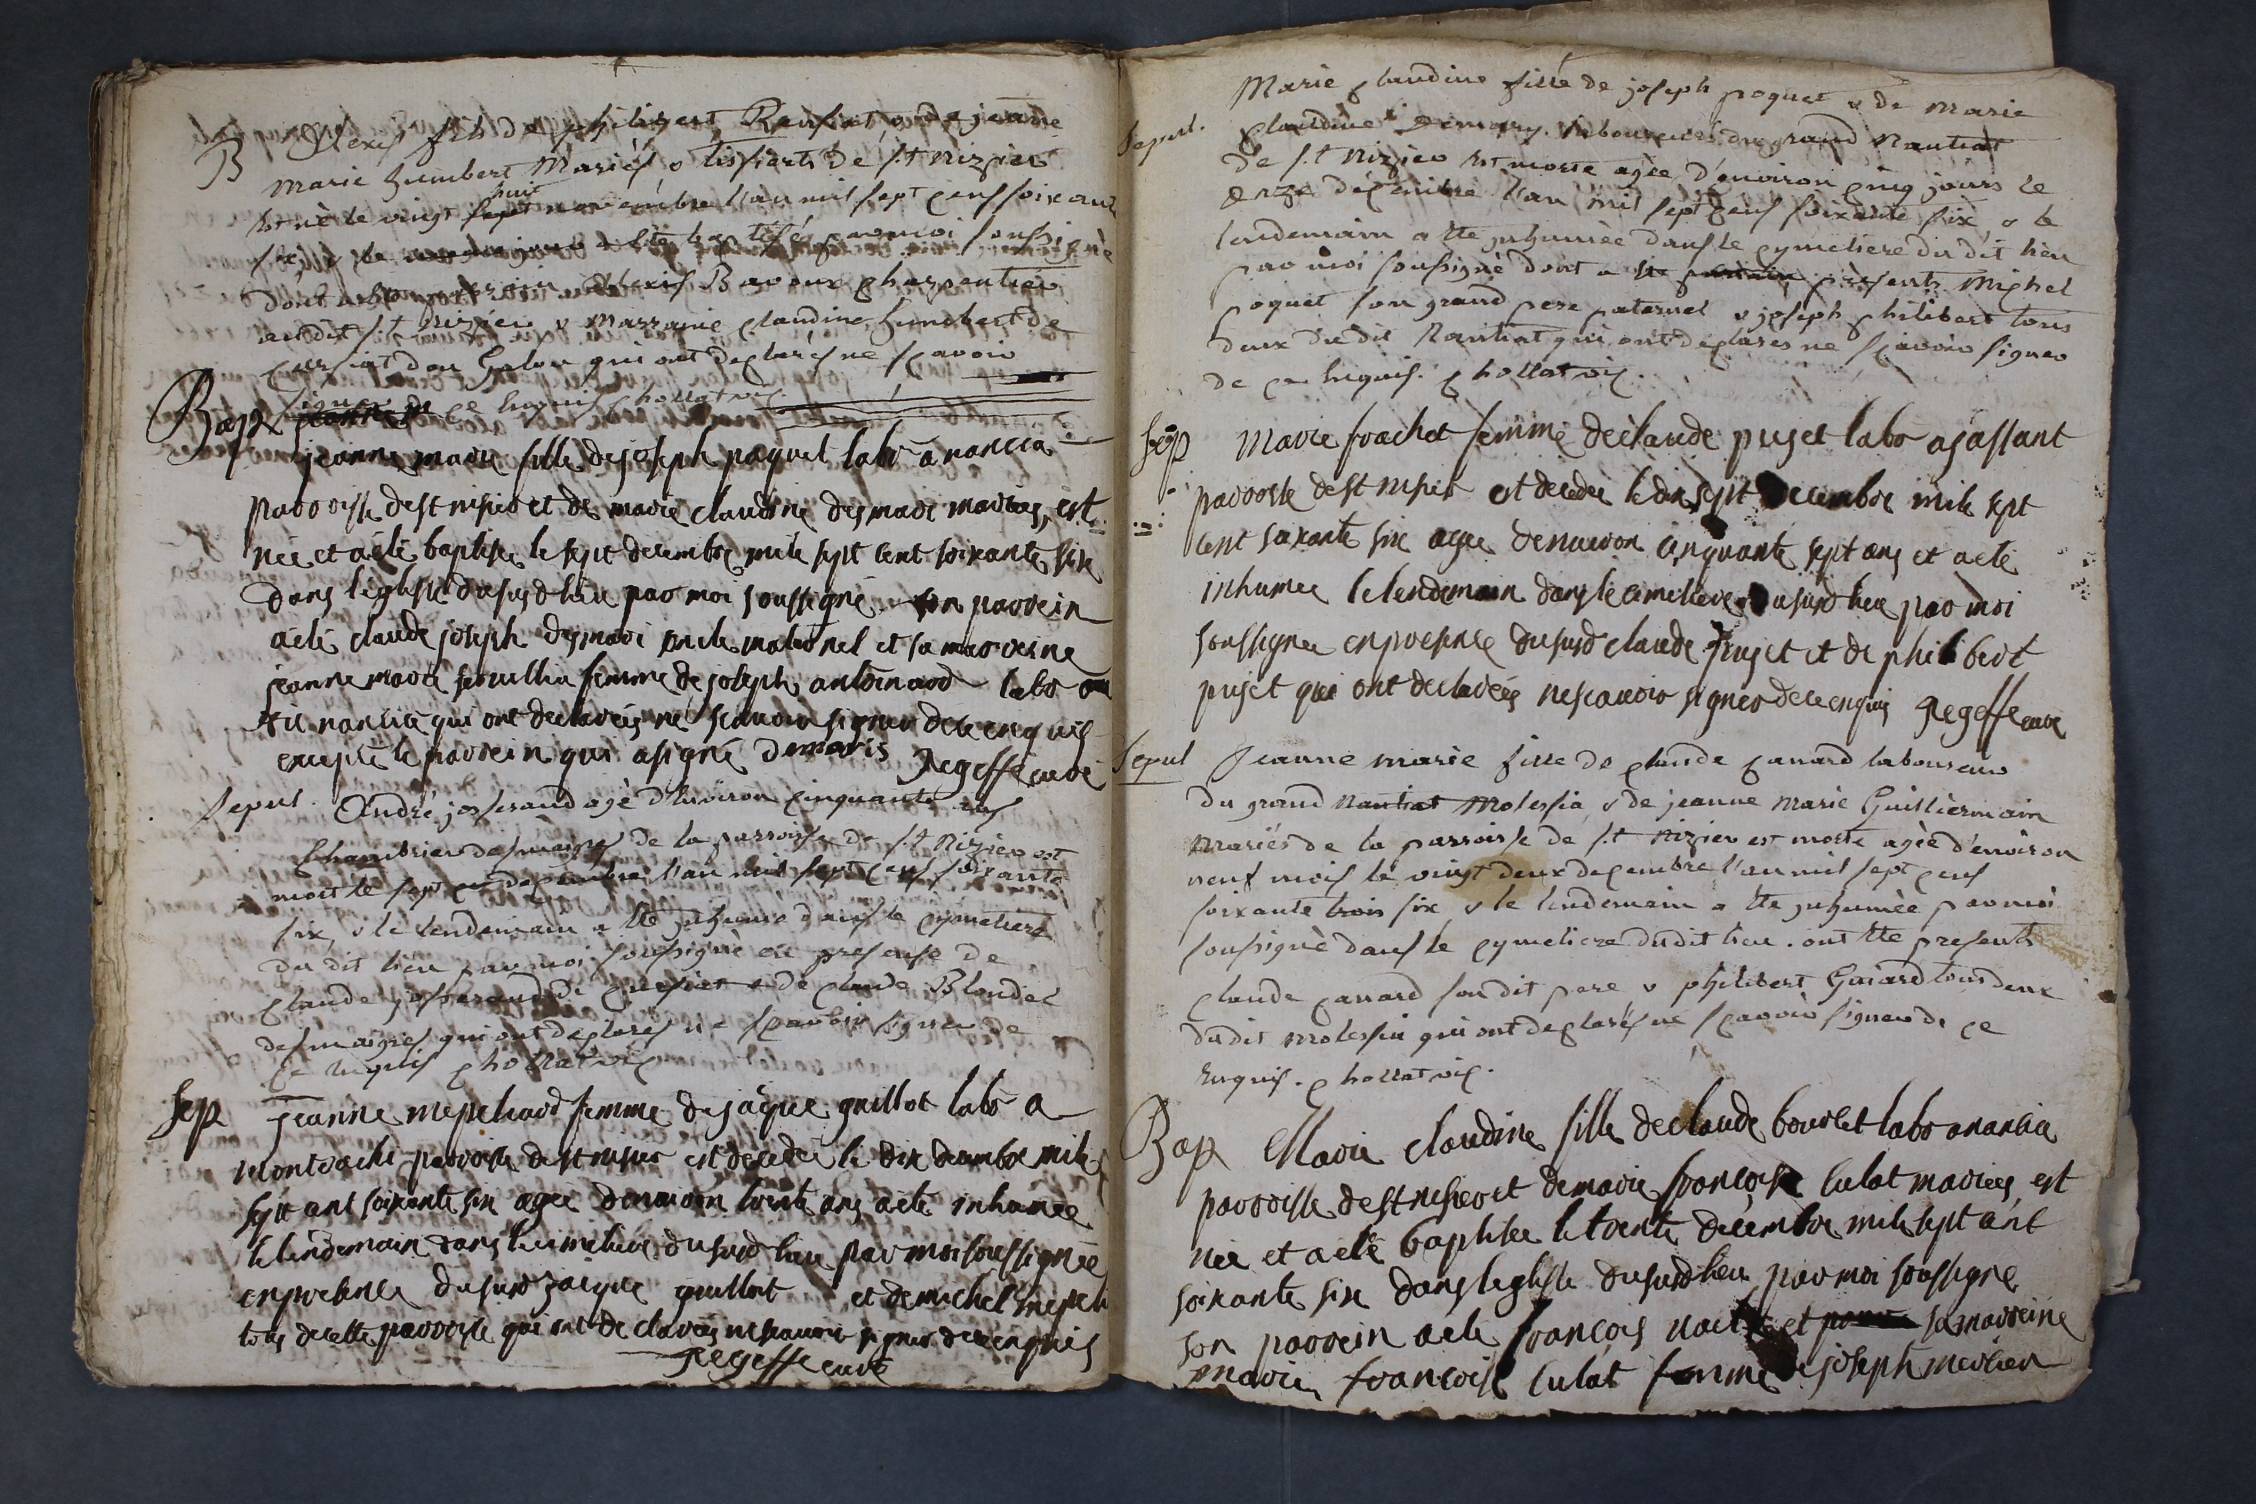 B Alexis fils de philibert Rousset, & de jeanne
marie humbert Mariés & tissiers de s.t Nizier
est né le vingt huit novembre l'an mil sept cens soixante
six, & le a été baptisé par moi soussigné
dont a été parrain Alexis Bavoux charpentier
audit s.t Nizier & Marraine claudine humbert de
qui ont declarés ne scavoir
signer de ce enquis chollat vic.
Bap jeanne marie fille de joseph paquet labr a nancia
parroisse de st nisier et de marie claudine desmari mariés, est
née et a été baptisée le sept decembre mile sept cent soixante six
dans l'eglise du susd lieu par moi soussigné son parrein
a été claude joseph desmari oncle maternel et sa marreine
jeanne marie femme de joseph antoinard labr au
dit nancia qui ont declarés ne scavoir signer de ce enquis
excepté le parrein qui a signé demaris Gegeffe curé
Sepul. André josserand agé d'environ cinquante ans
Chambrier de la parroisse de s.t Nizier est
mort le sept decembre l'an mil sept cens soixante
six, & le lendemain a été inhumé dans le cymetiere
du dit lieu par moi soussigné en presense de
Claude josserand de & de claude Blondel
qui ont declarés ne scavoir signer de
ce enquis chollat vic
Sep jeanne mepeliard femme de jaque guillot labr a
parroisse de st nisier est decedée le dix decembre mile
sept cent soixante six agée denviron trente ans a été inhumée
le lendemain dans le cimetiere du susd lieu par moi soussignée
en presence du susd jaque guillot et de michel
tous de cette parroisse qui ont declarés ne scavoir signer de ce enquis
Gegeffe curé
Marie claudine fille de joseph poquet & de marie
Sepul. claudine laboureurs du grand Nantiat
de s.t Nizier est morte agée d'environ cinq jours le
onze decembre l'an mil sept cens soixante six, & le
lendemain a été inhumée dans le cymetiere du dit lieu
par moi soussigné dont a été présents Michel
poquet son grand pere paternel & joseph philibert tous
deux du dit Nantiat qui ont declarés ne scavoir signer
de ce enquis. chollat vic.
Sep marie frachet femme de claude pujet labr a
parroisse de st nisier est decedée le dix sept decembre mile sept
cent soixante six agée denviron cinquante sept ans et a été
inhumée le lendemain dans le cimetiere du susd lieu par moi
soussignée en presence du susd claude pujet et de philibert
pujet qui ont declarés ne scavoir signer de ce enquis Gegeffe curé
Sepul Jeanne marie fille de claude canard laboureur
du grand Nantiat Molessia & de jeanne marie Guilliermain
mariés de la parroisse de s.t Nizier est morte agée d'environ
neuf mois le vingt deux decembre l'an mil sept cens
soixante trois six & le lendemain a été inhumée par moi
soussigné dans le cymetiere du dit lieu. ont été presents
claude canard son dit pere & philibert Guiard tous deux
du dit molessia qui ont declarés ne scavoir signer de ce
Enquis. chollat vic.
Bap Marie claudine fille de claude bourlet labr a nancia
parroisse de st nisier et de marie francoise culat mariées, est
née et a été baptisée le trente décembre mile sept cent
soixante six dans leglise du susd lieu par moi soussigné
son parrein a été francois et sa marreine
marie francoise culat femme de joseph